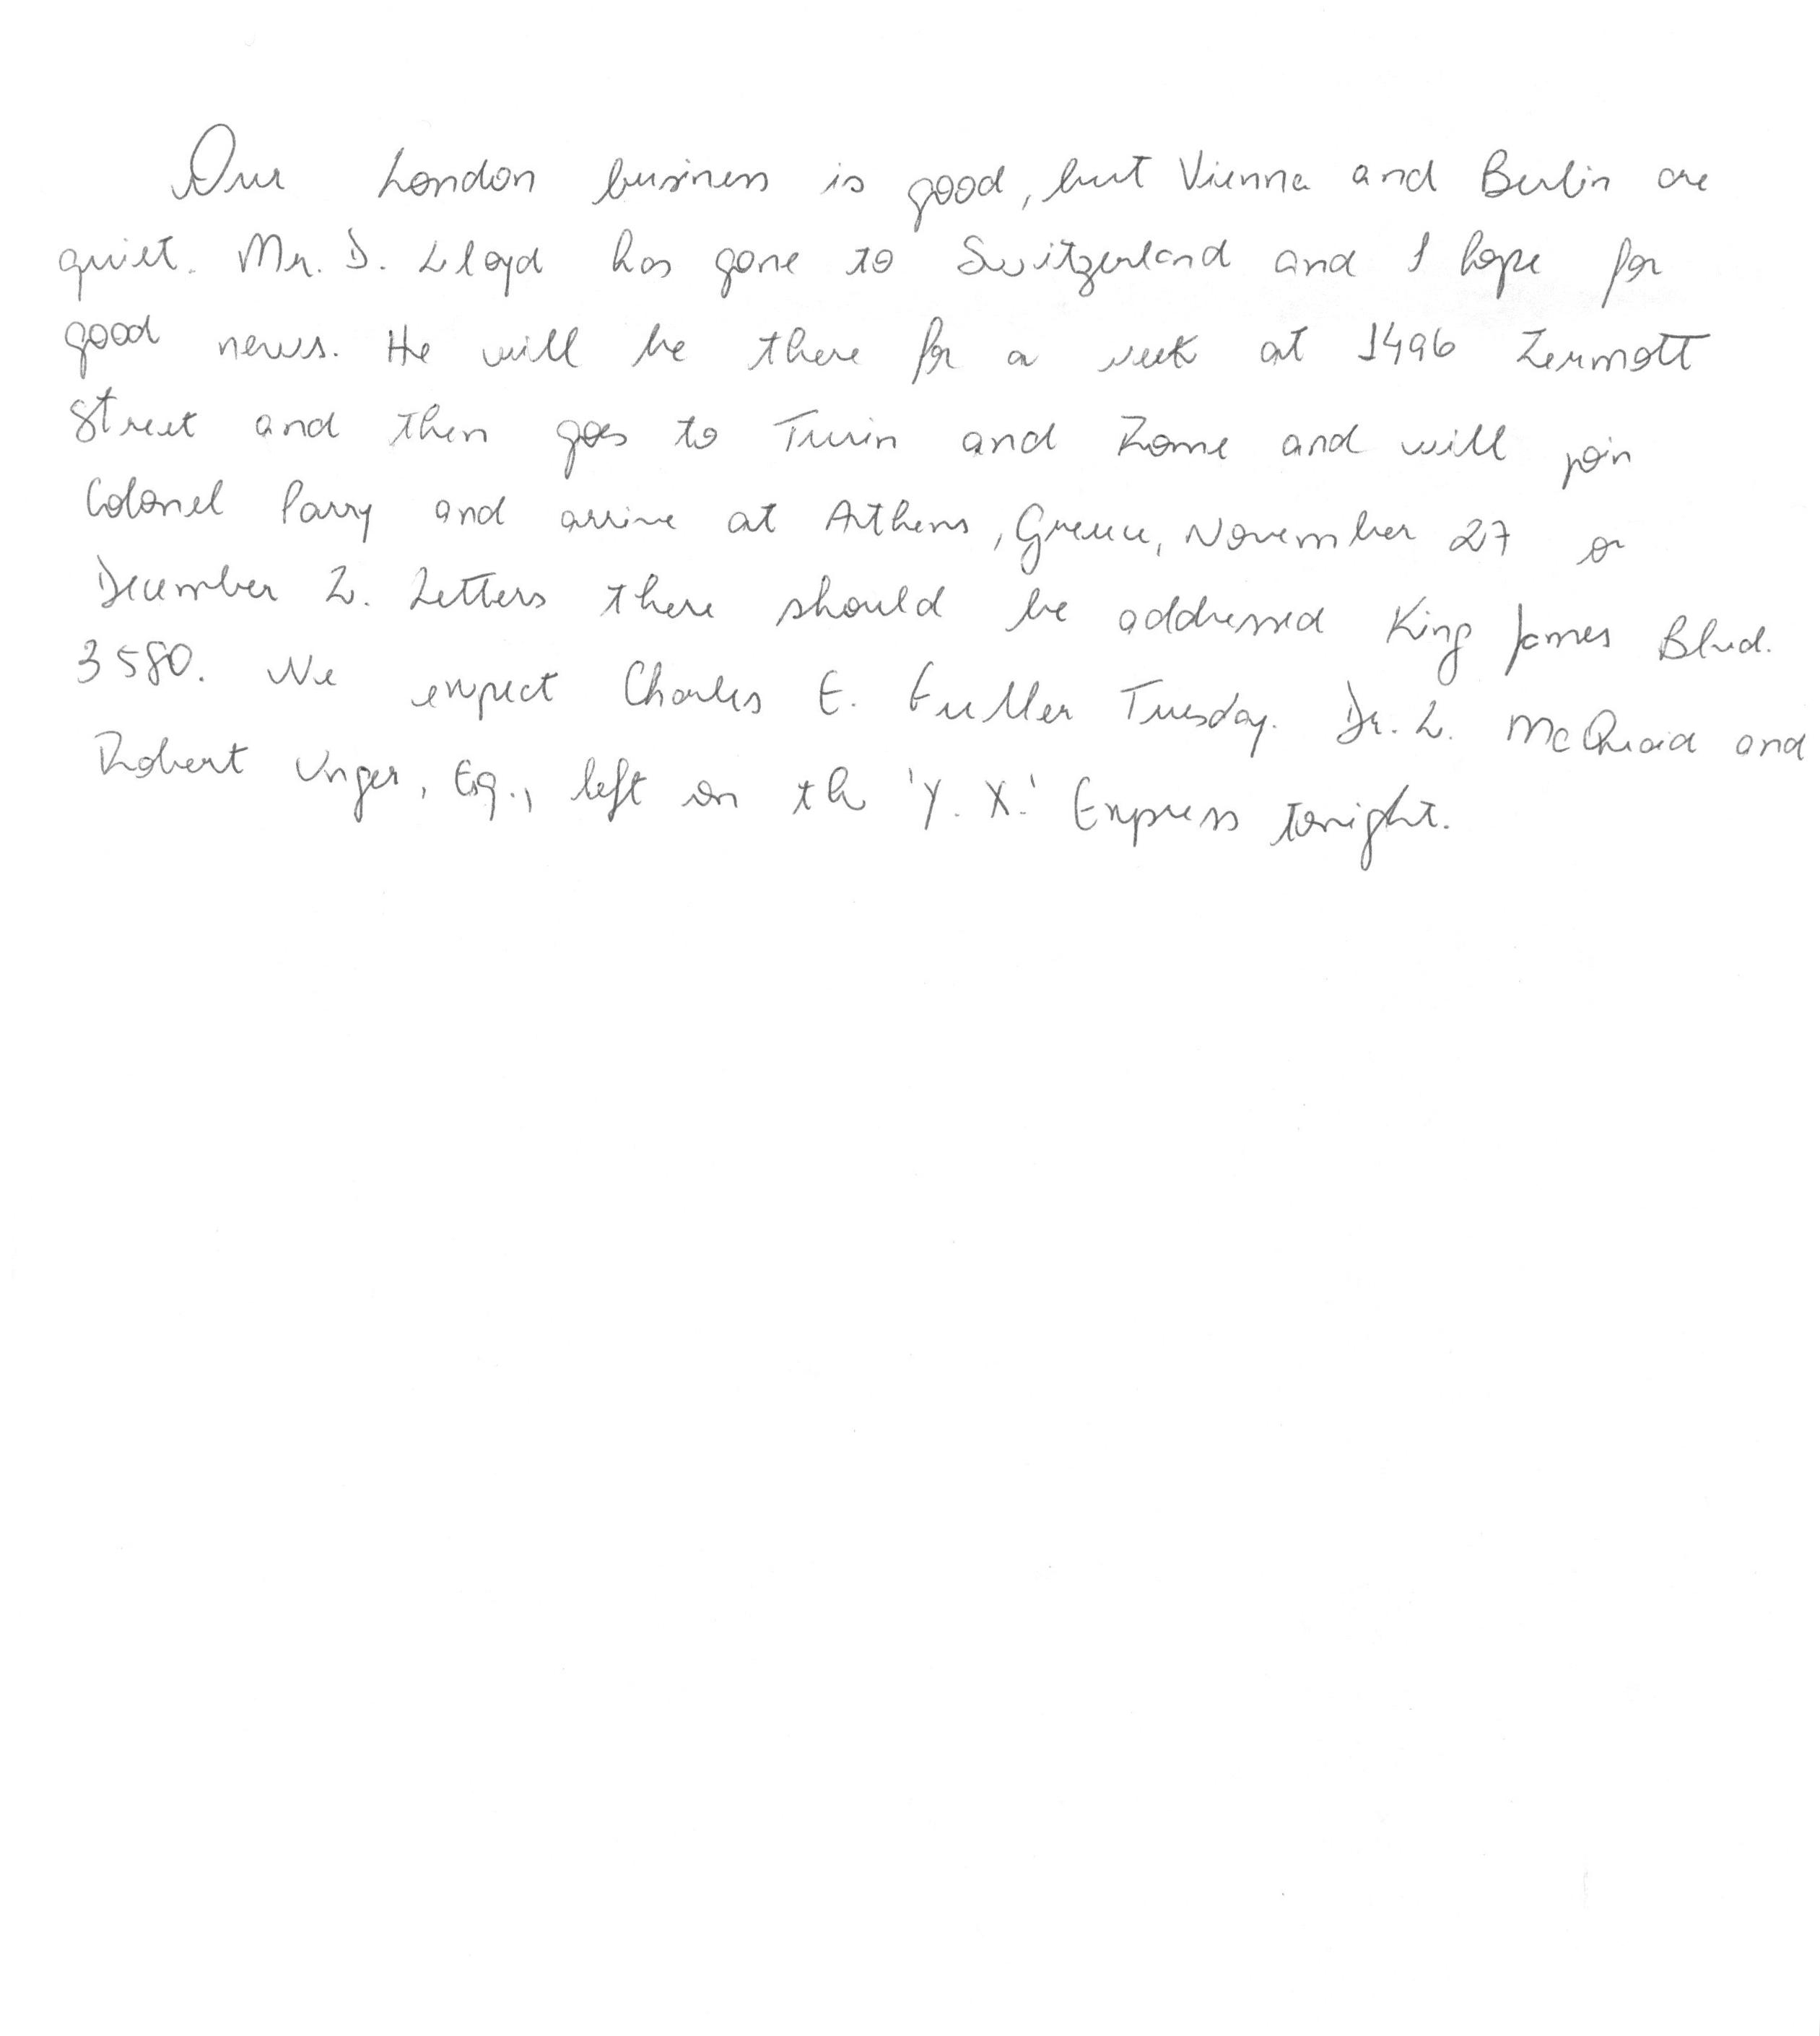 Our London business is good, but Vienna and Berlin are
quiet. Mr. D. Lloyd has gone to Switzerland and I hope for
good news. He will be there for a week at 1496 Zermott
Street and then goes to Turin and Rome and will join
Colonel Parry and arrive at Athens, Greece, November 27 or
December 2. Letters there should be addressed King James Blvd.
3580. We expect Charles E. Fuller Tuesday. Dr. L. McQuaid and
Robert Unger, Esq., left on th 'Y. X.' Express tonight.